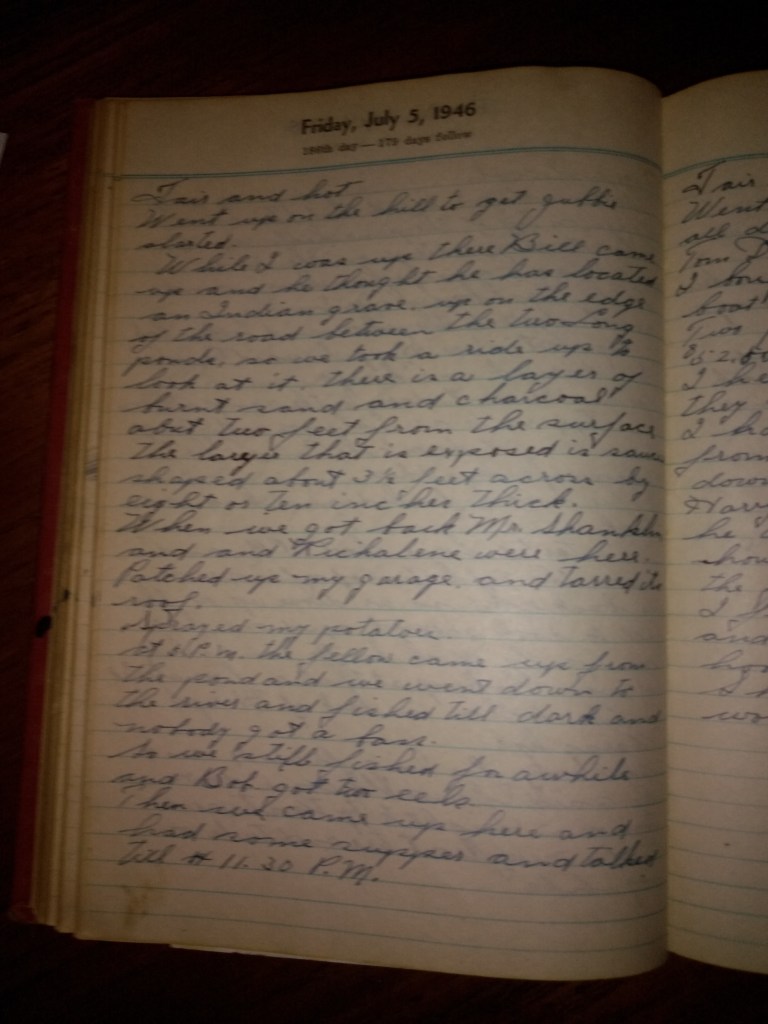 Friday, July 5, 1946
186th day — 179 days follow
Fair and hot
Went up on the hill to get
started.
While I was up there Bill came
up and he thought he has located
an Indian grave. up on the edge
of the road between the two Long
ponds. so we took a ride up to
look at it. there is a layer of
burnt sand and charcoal
about two feet from the surface
the layer that is exposed is
shaped about 3½ feet across by
eight or ten inches thick.
When we got back Mr. Shanklin
and and Richalene were here.
Patched up my garage. and tarred its
roof.
Sprayed my potatoes.
at P.M. the fellow came up from
the pond and we went down to
the river and fished till dark and
nobody got a bass.
So we still fished for awhile
and Bob got two eels
Then we came up here and
had some supper and talked
till 11.30 P.M.
Fair
Went
all d
Tom
I bou
boat
Two
I he
they
I ha
from
down
Harry
he
show
the
I
and
hou
I
wo